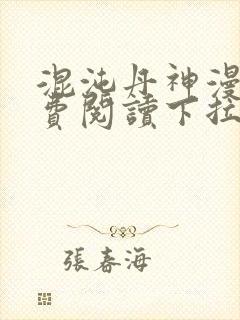 混沌丹神漫
費閱讀下拉
張春海